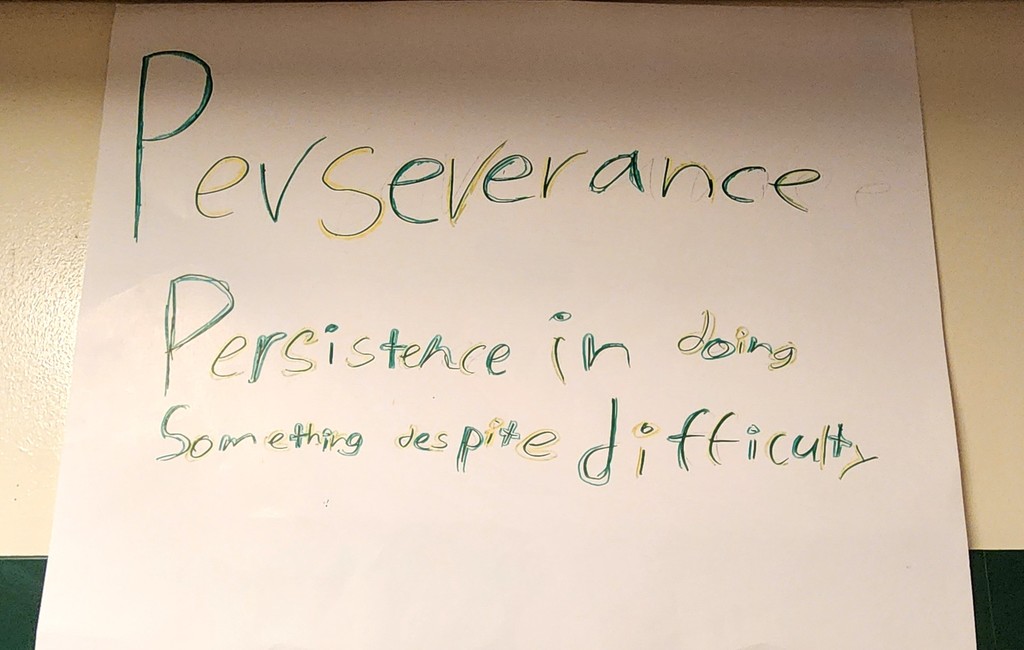 Perseverance
Persistence in doing
Something despite difficulty